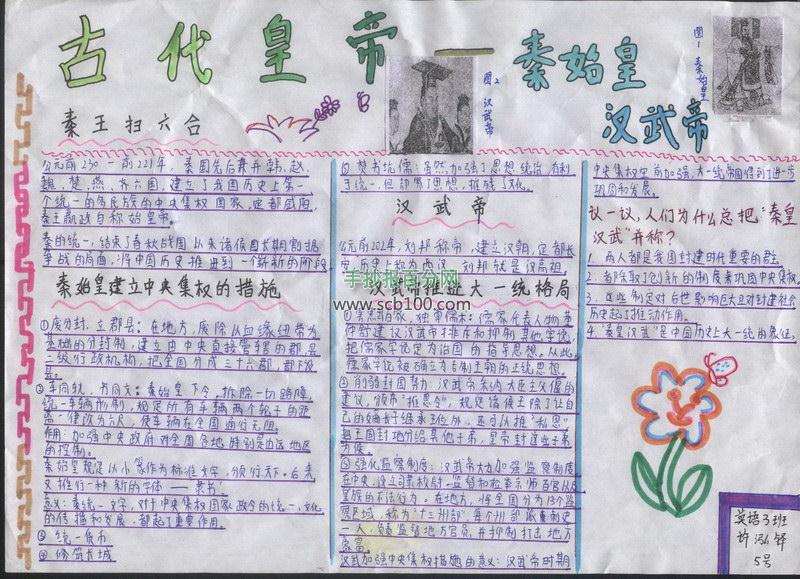 古代皇帝——秦始皇
汉武帝
图1 秦始皇
图2 汉武帝
秦王扫六合
公元前230—前221年，秦国先后兼并韩、赵、
魏、楚、燕、齐六国，建立了我国历史上第一
个统一的多民族的中央集权国家，定都咸阳，
秦王嬴政自称始皇帝。
秦的统一，结束了春秋战国以来诸侯国长期割据
争战的局面，将中国历史推进到一个崭新的阶段
秦始皇建立中央集权的措施
①废分封，立郡县：在地方，废除从血缘纽带为
基础的分封制，建立由中央直接管辖的郡、县
二级行政机构，把全国分成三十六郡，郡下设
县。
②车同轨，书同文：秦始皇下令，拆除一切障碍，
统一车辆形制，规定所有车辆两个轮子的距
离一律改为六尺，使车辆在全国通行无阻。
作用：加强中央政府对全国各地特别是边远地区
的控制。
秦始皇规定以小篆作为标准文字，颁行天下。后来
又推行一种新的字体——隶书
意义：秦统一文字，对中央集权国家政令的统一，文化
的传播和发展，都起了重要作用。
③统一货币
④修筑长城
⑤焚书坑儒：虽然加强了思想统治，有利
于统一，但却了思想，摧残了文化。
汉武帝
公元前202年，刘邦称帝，建立汉朝，定都长
安，历史上称为西汉，刘邦就是汉高祖。
汉武帝推进大一统格局
①罢黜百家，独尊儒术：儒家代表人物董
仲舒建议汉武帝排斥和抑制其他学说，
把儒家学说定为治国的指导思想。从此，
儒家学说被确立为专制王朝的正统思想。
②削弱封国势力：汉武帝采纳大臣主父偃的
建议，颁布“推恩令”，规定诸侯王除了让自
己的嫡长子继承王位外，还可以推“私恩”
把王国封地分给其他子弟，皇帝封这些子弟
为侯。
③强化监察制度：汉武帝大力加强监察制度
在中央，设立司隶校尉，监督和检举京师百官以及
皇族的不法行为。在地方，将全国分为13个监
察区域，称为“十三州部”每个州部派遣刺史
一人，负责监督地方官员，并抑制打击地方
豪富。
汉武加强中央集权措施的意义：汉武帝时期
中央集权空前加强，大一统帝国得到进一步
巩固和发展。
议一议，人们为什么总把“秦皇
汉武”并称？
1. 两人都是我国封建时代重要的君。
2. 都采取了创新的制度来巩固中央集权
3. 这些制定对后世影响巨大且对封建社会
历史起了推动作用。
4. “秦皇汉武”是中国历史上大一统的象征。
英语3班
许
5号
手抄报百分网
www.scb100.com